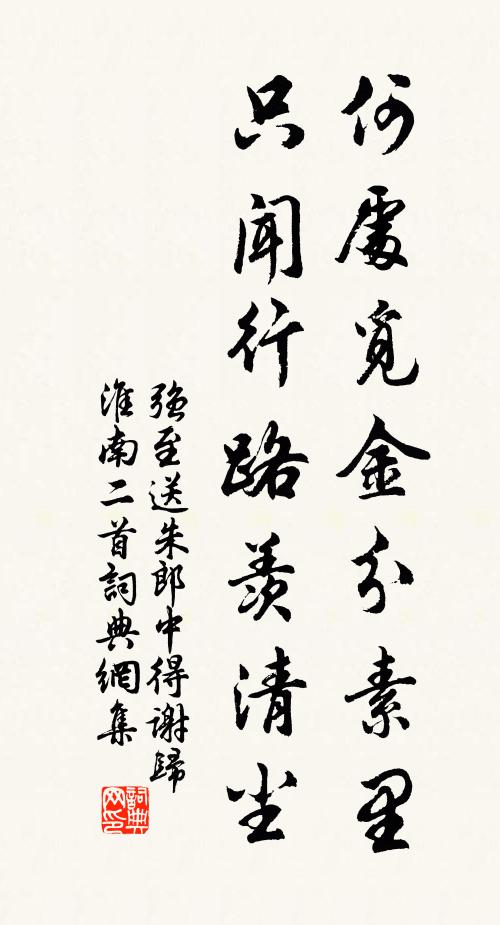 何處覓金分素里
只聞行路羨清塵
強至送朱郎中得謝歸
淮南二首詞典網集
詞典
网印